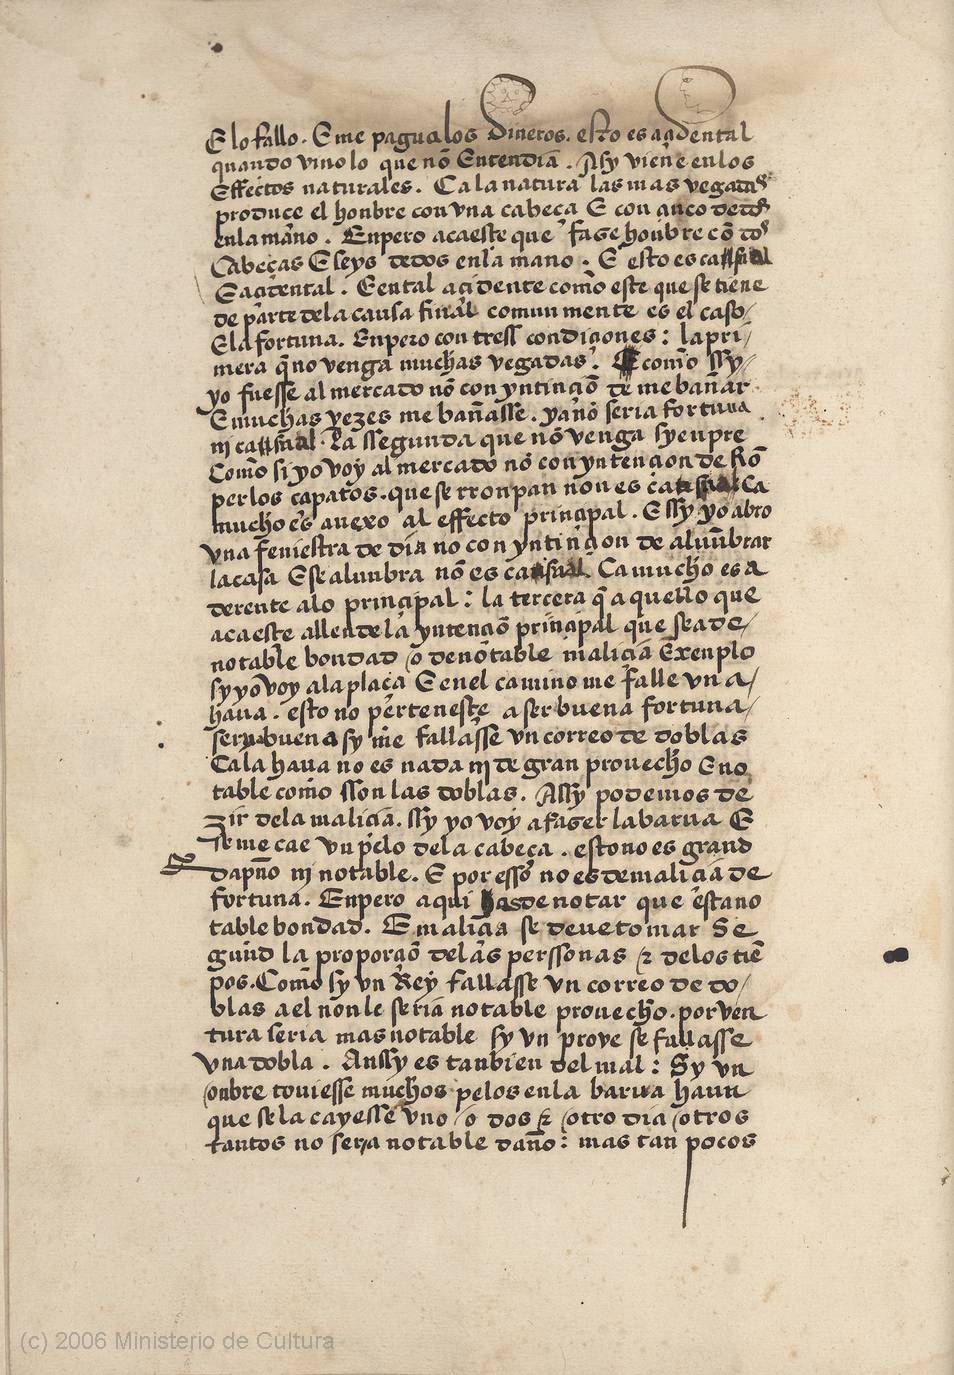 E lo fallo. E me pagua los dineros. esto es açidental
quando vino lo que nõ Entendia. Asy viene en los
Effectos naturales. Ca la natura las mas vegadas
produce el honbre con vna cabeça E con çinco dedos
en la mano. Enpero acaesçe que fase honbre cõ dos
Cabeças E seys dedos en la mano. E esto es casual
E açidental. E en tal açidente como este que se tiene
de parte de la causa final comun mente es el caso
E la fortuna. Enpero con tress condiçiones: la pri/
mera q̃ no venga muchas vegadas. como ssy/
yo fuesse al mercado nõ con yntinçiõ de me bañar
E muchas vezes me bañasse. ya nõ seria fortuna
nj casual. La ssegunda que nõ venga syenpre
Como si yo voy al mercado nõ con yntençion de Rõ
per los çapatos. que se rronpan non es casual Ca
mucho es anexo al effecto prinçipal. E ssy yo abro
vna feniestra de dia no con yntinçion de alunbrar
la casa E se alunbra nõ es casual. Ca mucho es a
derente a lo prinçipal: la tercera q̃ aquello que
acaesçe allende la yntençiõ prinçipal que sea de/
notable bondad o de nõtable maliçia Exenplo
sy yo voy a la plaça E en el camino me falle vn a/
hava. esto no pertenesçe a ser buena fortuna/
seria buena sy me fallasse vn correo de doblas
Ca la hava no es nada nj de gran prouecho E no
table como sson las doblas. Assy podemos de
zir de la maliçia. ssy yo voy a faser la barua E
se me cae vn pelo de la cabeça. esto no es grand
dapño nj notable. E por esso no es de maliçia de
fortuna. Enpero aqui has de notar que esta no
table bondad. E maliçia se deue tomar Se
gund la proporçiõ de las perssonas ⁊ de los tiẽ
pos. Como sy vn Rey fallasse vn correo de do/
blas a el non le seria notable prouecho. por ven
tura seria mas notable sy vn prove se fallasse
vna dobla. Anssy es tanbien del mal: Sy vn
onbre touiesse muchos pelos en la barua haun
que se la cayesse vno o dos ⁊ otro dia otros
tantos no seria notable daño: mas tan pocos
(c) 2006 Ministerio de Cultura